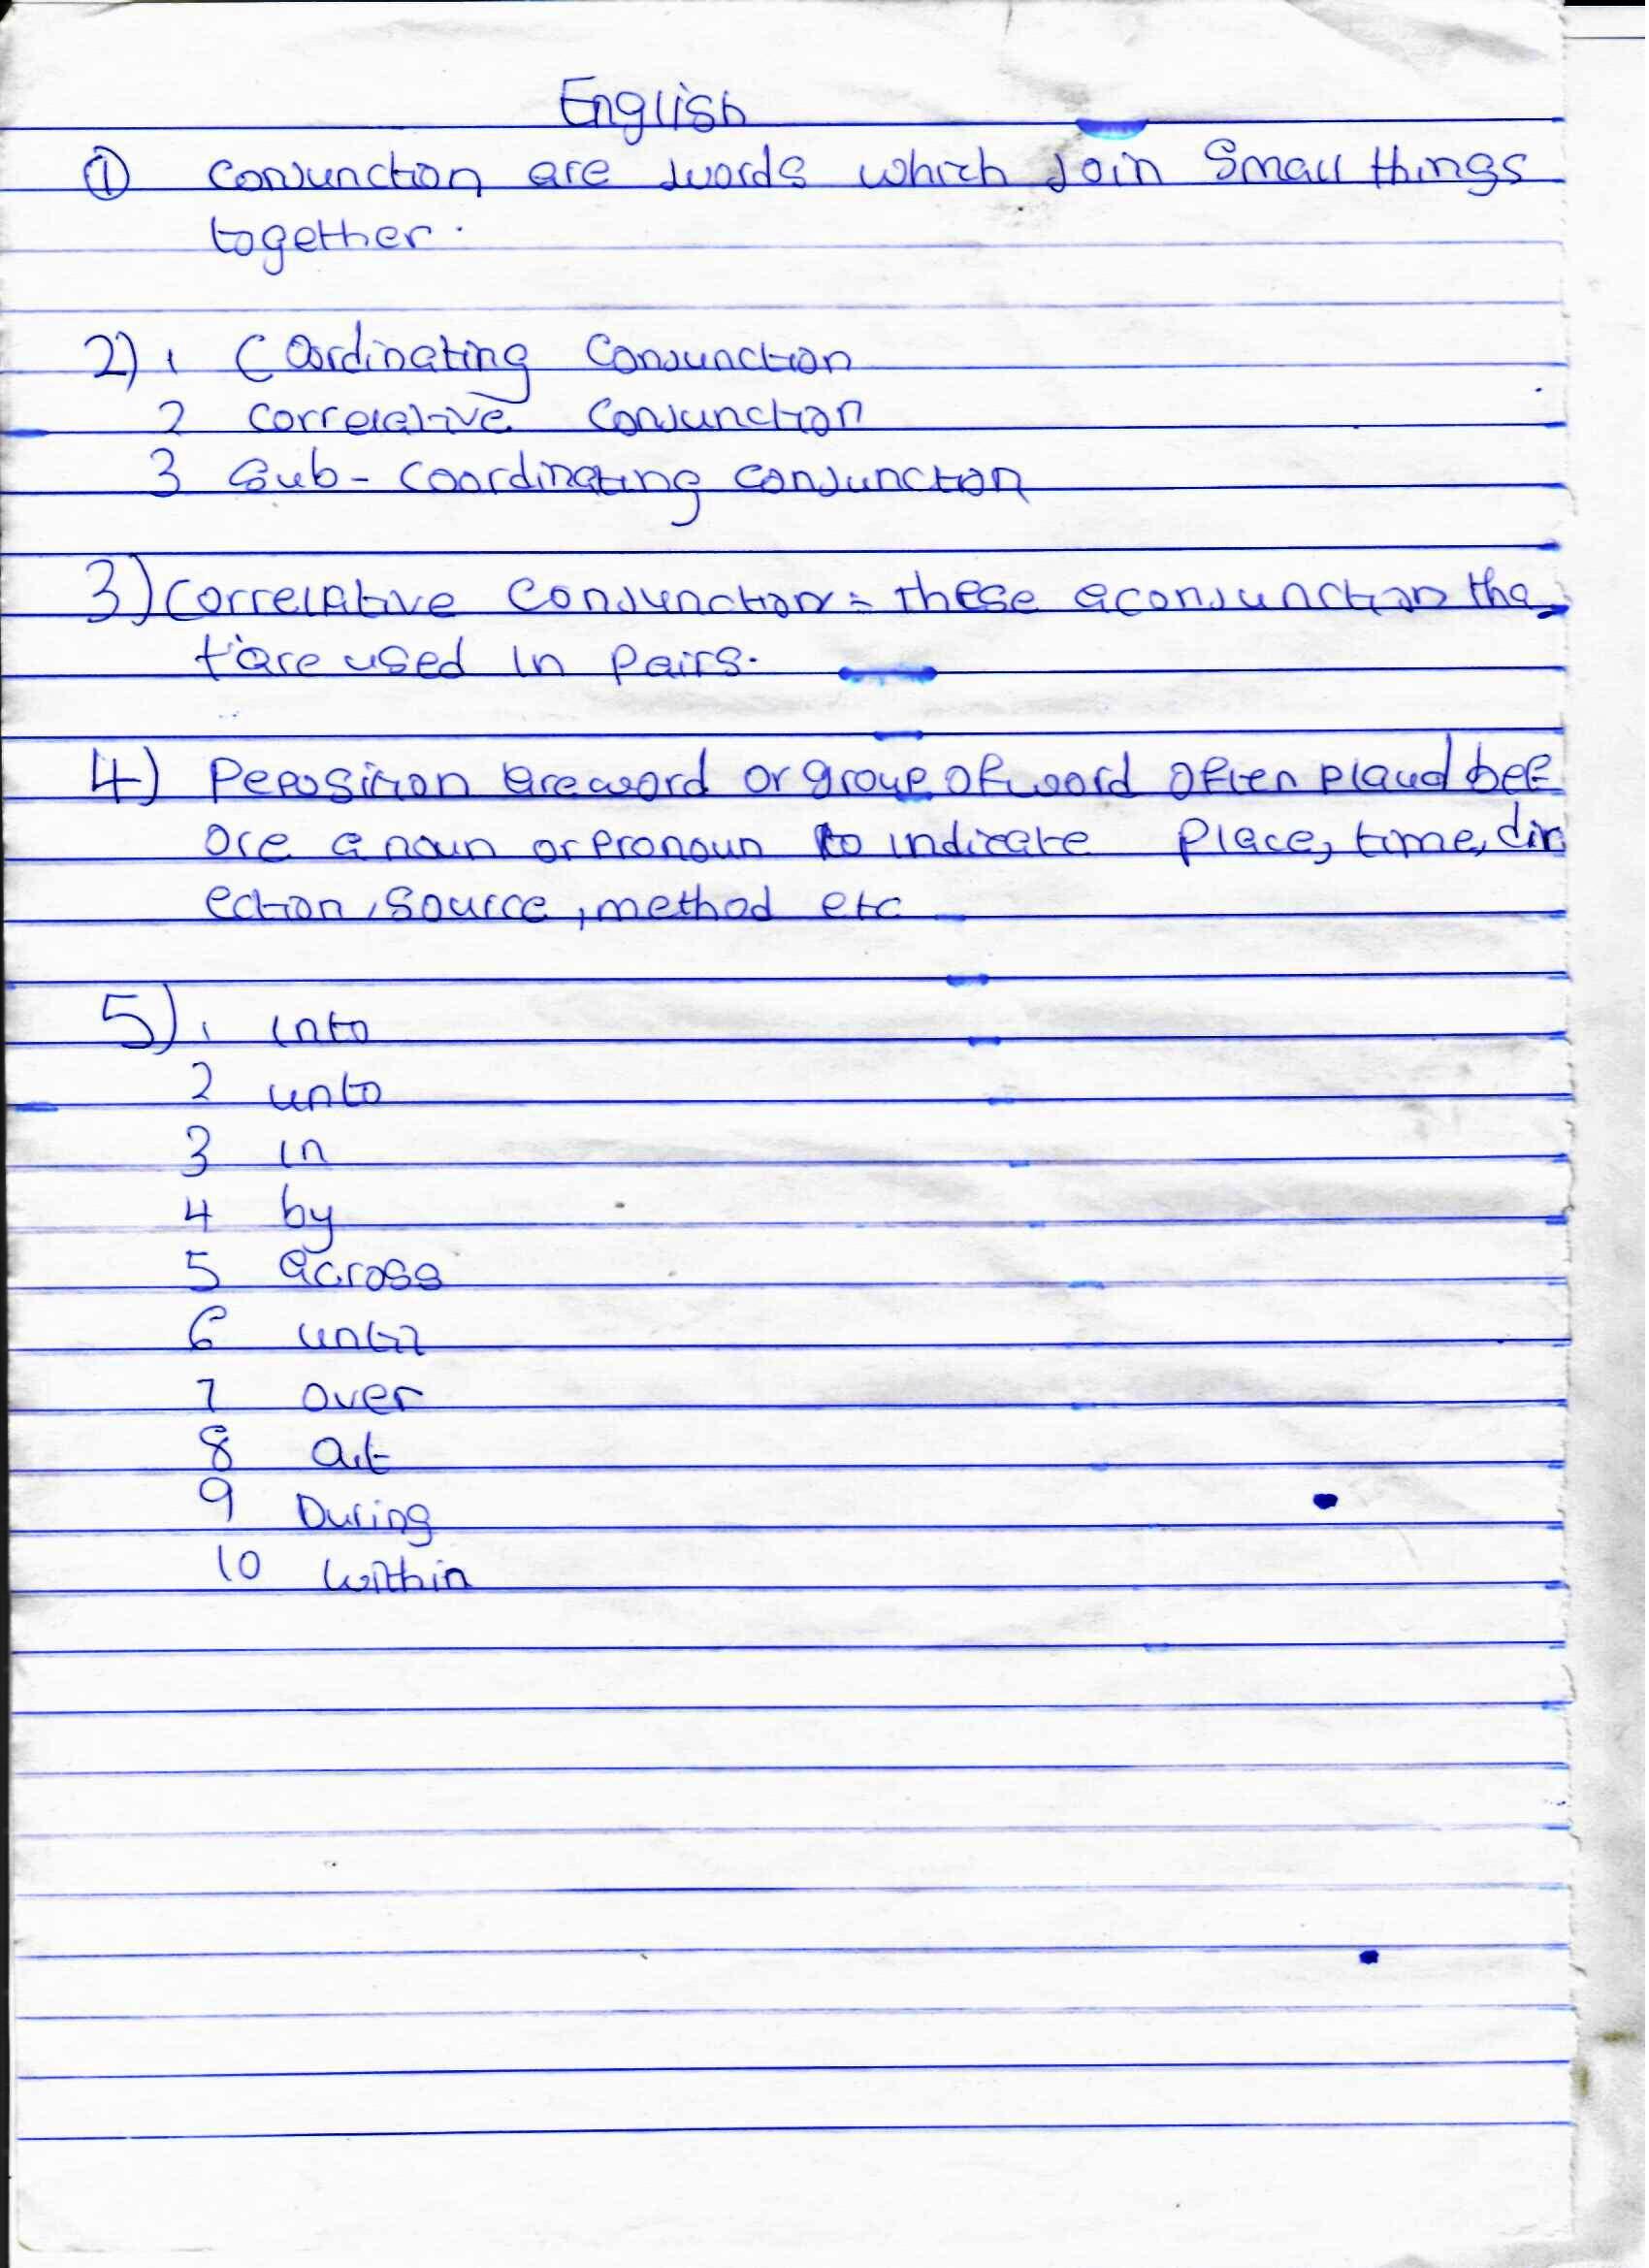 English
① Conjunction are words which Join Small things
together.
2) 1 Coordinating Conjunction
2 Correlative Conjunction
3 Sub-Coordinating Conjunction
3) Correlative Conjunction = these a conjunction tha
t are used In pairs.
4) Peposition are word or group of word often placed bef
ore a noun or pronoun to indicate place, time, dir
ection, source, method etc
5) 1 into
2 unto
3 in
4 by
5 across
6 until
7 over
8 at
9 During
10 within